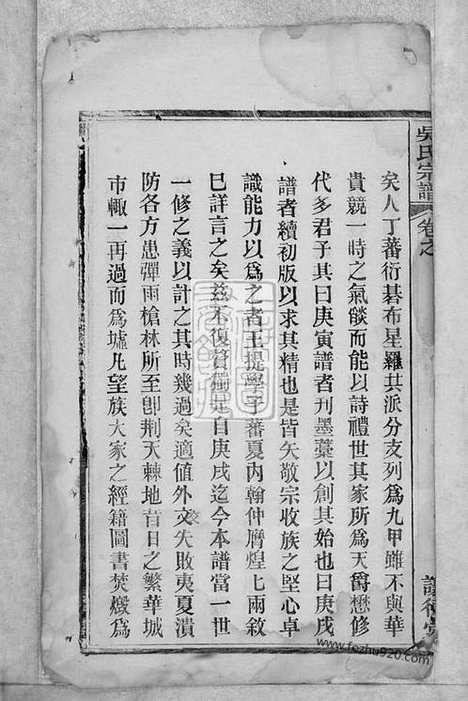 吳氏宗譜
卷之
矣人丁蕃衍碁布星羅共派分支列為九甲雖不與華
貴競一時之氣燄而能以詩禮世其家所為天爵懋修
代多君子其曰庚寅譜者刊墨藁以創其始也曰庚戌
譜者續初版以求其精也是皆矢敬宗收族之堅心卓
識能力以為之者王提學子蕃夏内翰仲膺煌七兩敘
巳詳言之矣茲不復贅獨是自庚戌迄今本譜當一世
一修之義以計之其時幾過矣適值外交失敗夷夏潰
防各方患彈雨槍林所至卽荆天棘地昔日之繁華城
市輙一再過而為墟凡望族大家之經籍圖書焚燬為
www.fozhu920.com